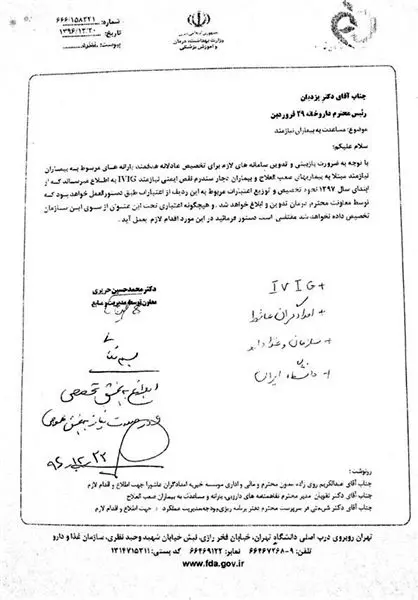 شماره: ۶۶۶/۱۵۸۳۲۱
تاریخ: ۱۳۹۶/۱۲/۲۰
پیوست: ندارد
جمهوری اسلامی ایران
وزارت بهداشت، درمان
و آموزش پزشکی
جناب آقای دکتر یزدیان
رئیس محترم داروخانه ۲۹ فروردین
موضوع: مساعدت به بیماران نیازمند
سلام علیکم:
با توجه به ضرورت بازبینی و تدوین سامانه های لازم برای تخصیص عادلانه هدفمند یارانه های مربوط به بیماران
نیازمند مبتلا به بیماریهای صعب العلاج و بیماران دچار سندرم نقص ایمنی نیازمند IVIG به اطلاع میرساند که از
ابتدای سال ۱۳۹۷ نحوه تخصیص و توزیع اعتبارات مربوط به این ردیف از اعتبارات طبق دستورالعمل خواهد بود که
توسط معاونت محترم درمان تدوین و ابلاغ خواهد شد و هیچگونه اعتباری تحت این عنوان از سوی این سازمان
تخصیص داده نخواهد شد مقتضی است دستور فرمائید در این مورد اقدام لازم بعمل آید.
دکتر محمدحسین حریری
معاون توسعه مدیریت و منابع
IVIG +
+ امدادگران عاشورا
+ سازمان غذا و دارو
+ دانشگاه ایران
۹۶,۱۲,۲۲
رونوشت:
جناب آقای عبدالکریم روی زاده معاون محترم و مالی و اداری موسسه خیریه امدادگران عاشورا جهت اطلاع و اقدام لازم
جناب آقای دکتر تقویان مدیر محترم تفاهمنامه های دارویی، یارانه و مساعدت به بیماران صعب العلاج
جناب آقای دکتر سرپرست محترم دفتر برنامه ریزی بودجه مدیریت عملکرد : جهت اطلاع و اقدام لازم
تهران روبروی درب اصلی دانشگاه تهران، خیابان فخر رازی، نبش خیابان شهید وحید نظری، سازمان غذا و دارو
تلفن: ۹-۶۶۴۶۷۲۶۸ نمابر: ۶۶۴۶۹۱۲۲ کد پستی: ۱۳۱۴۷۱۵۳۱۱
www.fda.gov.ir